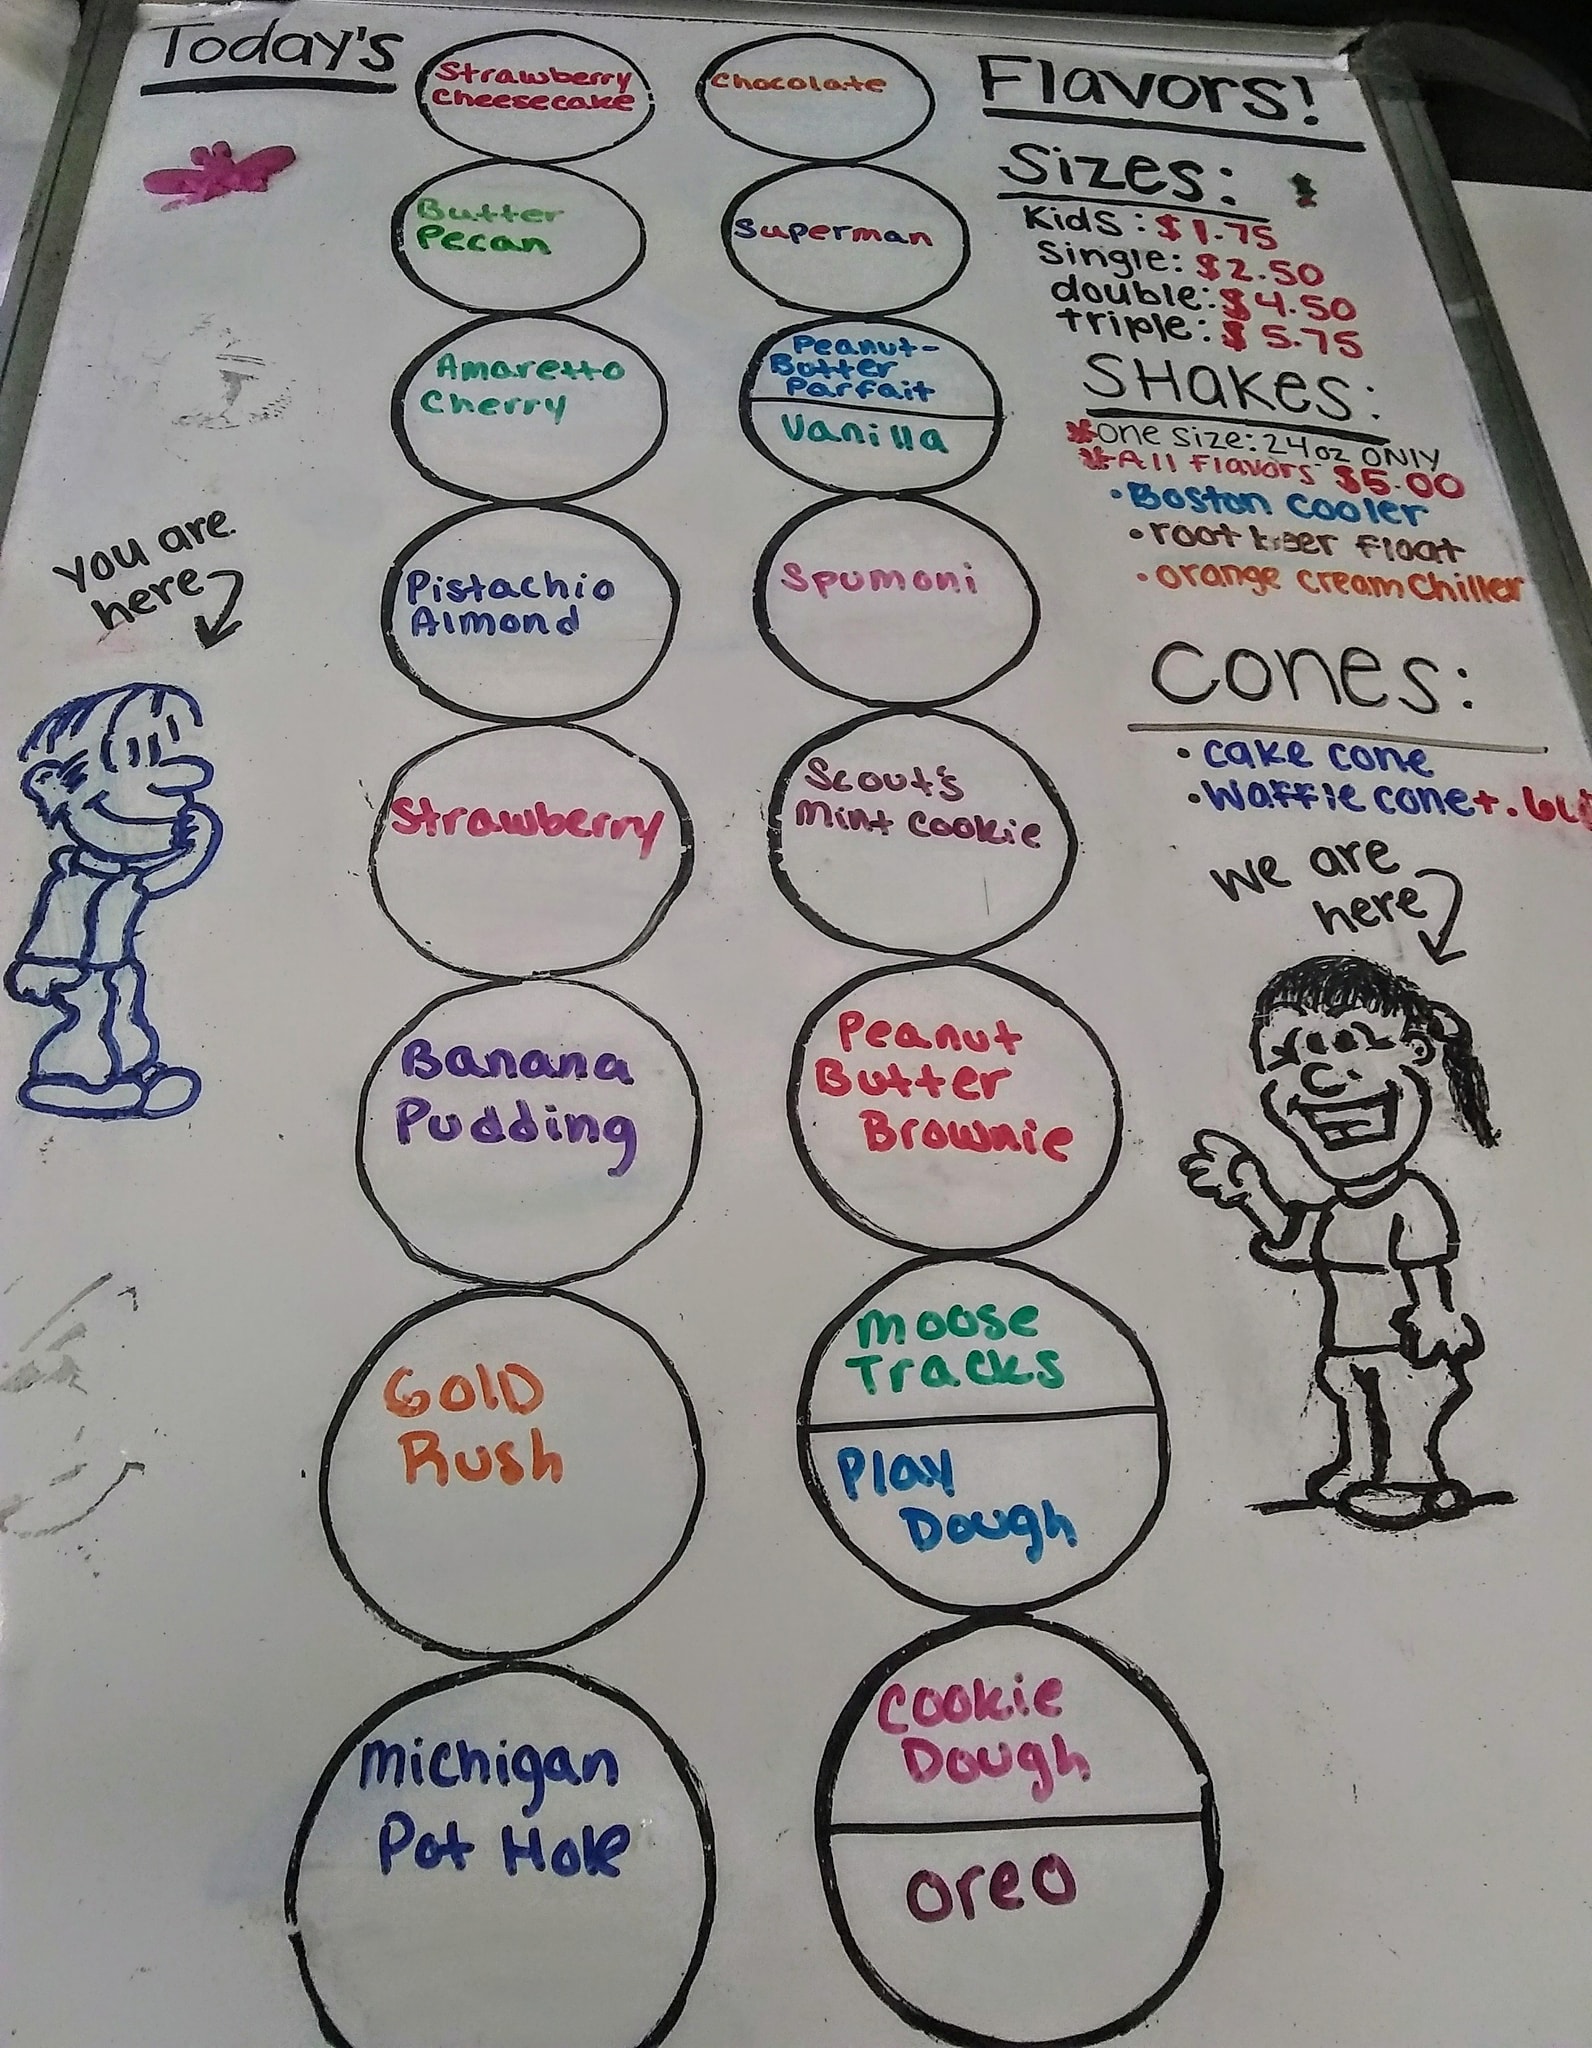 Today's
Flavors!
Strawberry
Cheesecake
Chocolate
Butter
Pecan
Superman
Amaretto
Cherry
Peanut-
Butter
Parfait
Vanilla
Pistachio
Almond
Spumoni
Strawberry
Scout's
Mint Cookie
Banana
Pudding
Peanut
Butter
Brownie
Gold
Rush
Moose
Tracks
Play
Dough
Michigan
Pot Hole
Cookie
Dough
oreo
Sizes:
Kids: $1.75
Single: $2.50
double: $4.50
triple: $5.75
SHakes:
*One size: 24oz ONLY
*All Flavors $5.00
• Boston Cooler
• root beer float
• orange cream Chiller
Cones:
• cake cone
• waffle cone
you are
here
we are
here